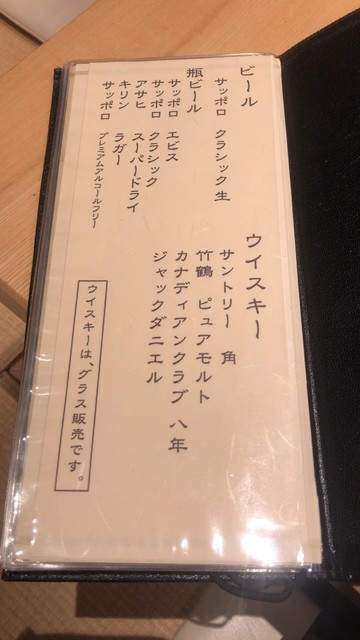 ビール
サッポロ クラシック 生
瓶ビール
サッポロ エビス
サッポロ クラシック
アサヒ スーパードライ
キリン ラガー
サッポロ プレミアムアルコールフリー
ウイスキー
サントリー 角
竹鶴 ピュアモルト
カナディアンクラブ 八年
ジャックダニエル
ウイスキーは、グラス販売です。